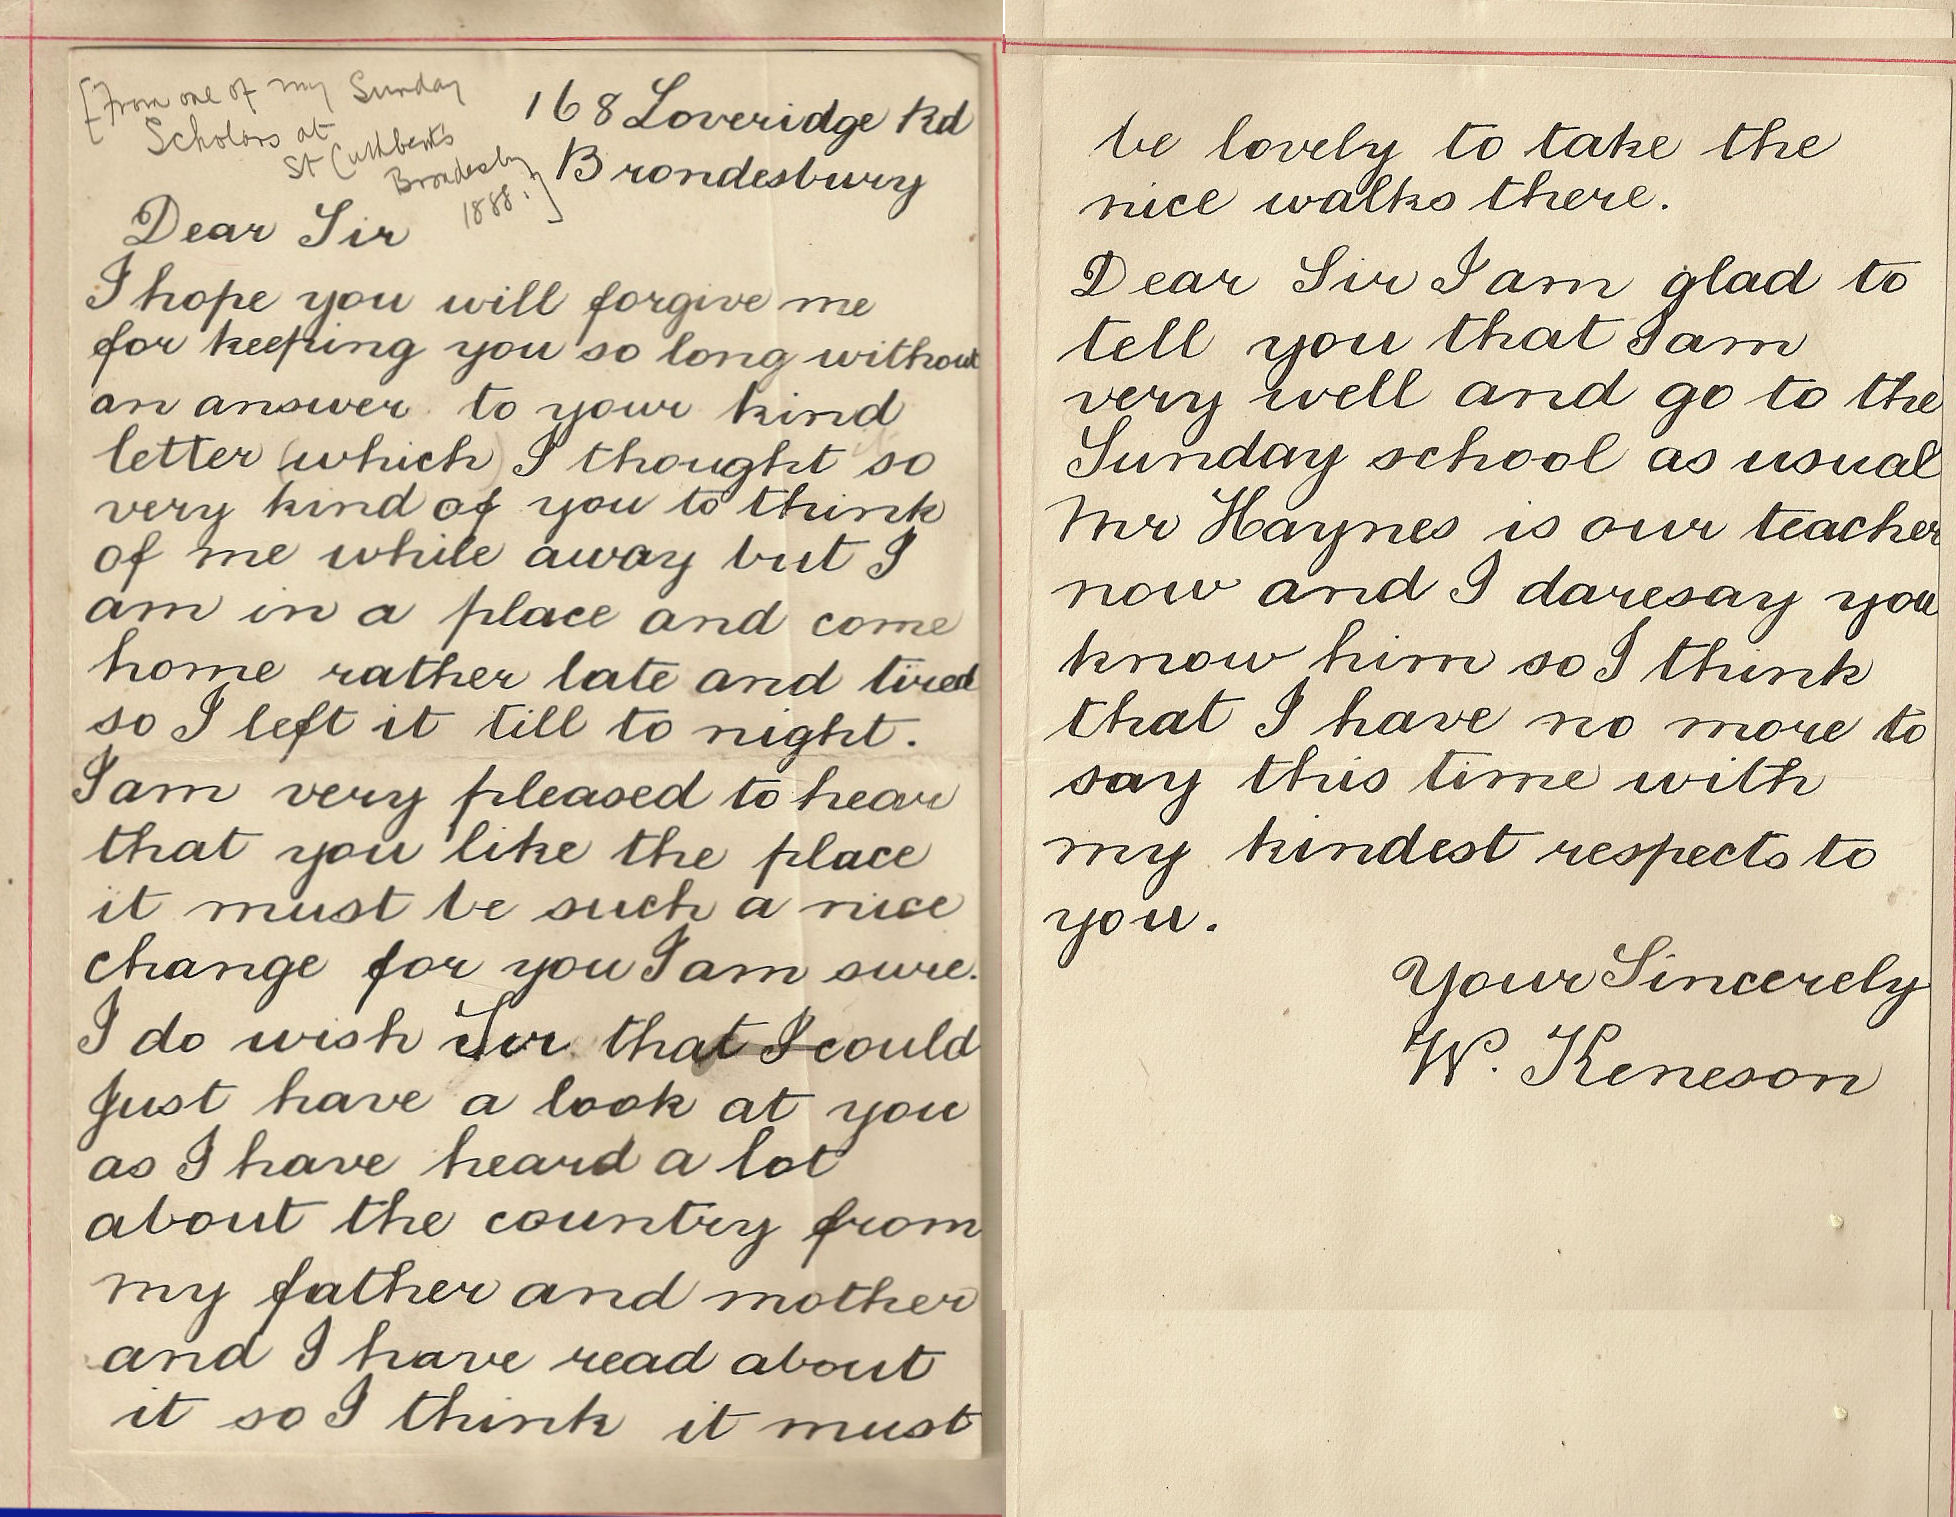 [From one of my Sunday
Scholars at
St Cuthbert's
Brondesby
1888.]
168 Loveridge Rd
Brondesbury
Dear Sir
I hope you will forgive me
for keeping you so long without
an answer to your kind
letter (which) I thought so
very kind of you to think
of me while away but I
am in a place and come
home rather late and tired
so I left it till to night.
I am very pleased to hear
that you like the place
it must be such a nice
change for you I am sure.
I do wish Sir that I could
Just have a look at you
as I have heard a lot
about the country from
my father and mother
and I have read about
it so I think it must
be lovely to take the
nice walks there.
Dear Sir I am glad to
tell you that I am
very well and go to the
Sunday school as usual
Mr Haynes is our teacher
now and I daresay you
know him so I think
that I have no more to
say this time with
my kindest respects to
you.
Your Sincerely
W. Keneson